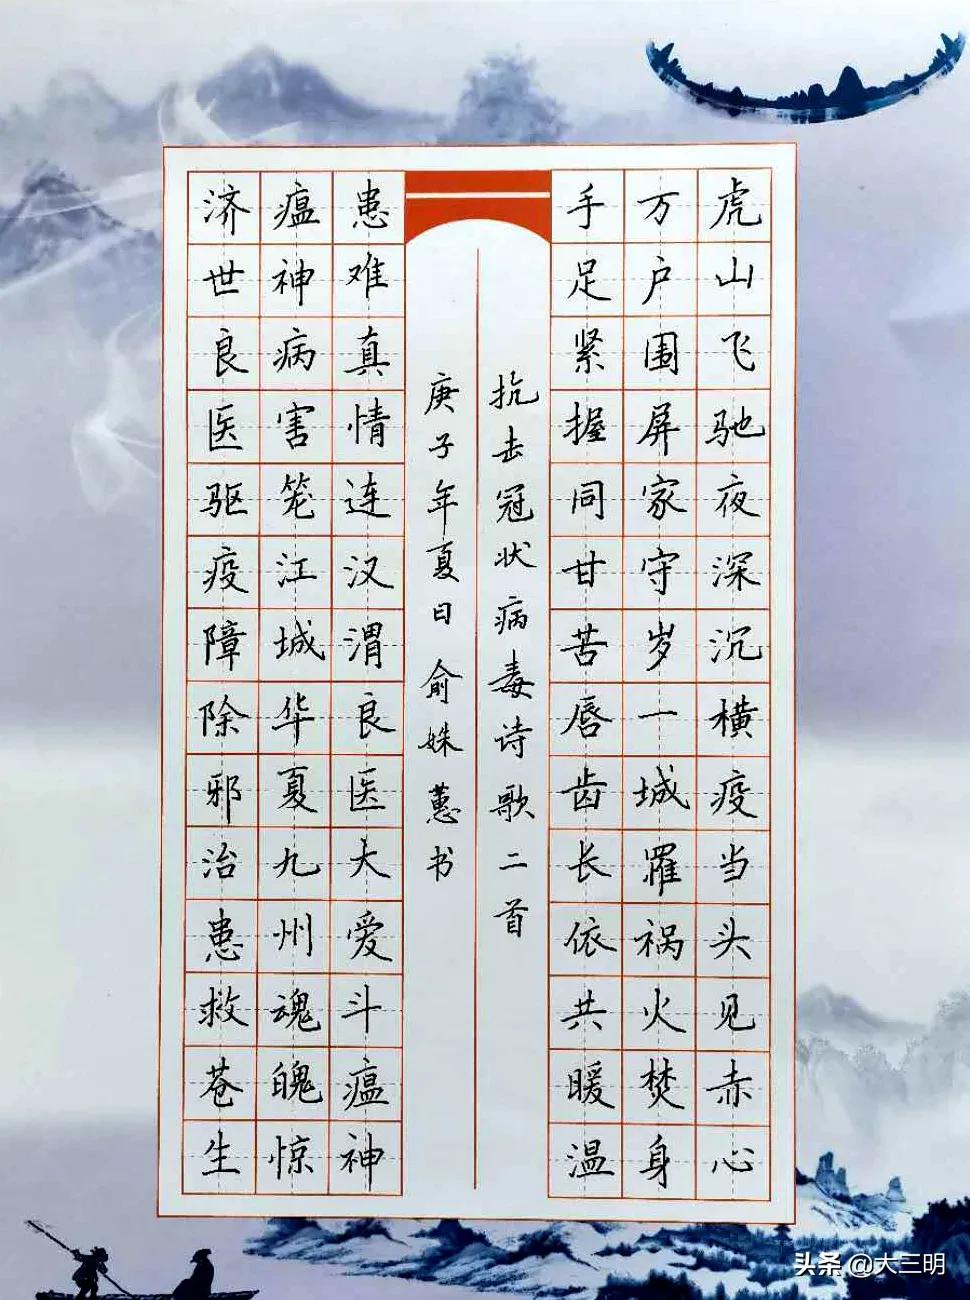 虎山飞驰夜深沉横疫当头见赤心
万户围屏家守岁一城罹祸火焚身
手足紧握同甘苦唇齿长依共暖温
抗击冠状病毒诗歌二首
庚子年夏日俞姝蕙书
患难真情连汉渭良医大爱斗瘟神
瘟神病害笼江城华夏九州魂魄惊
济世良医驱疫障除邪治患救苍生
头条 @大三明